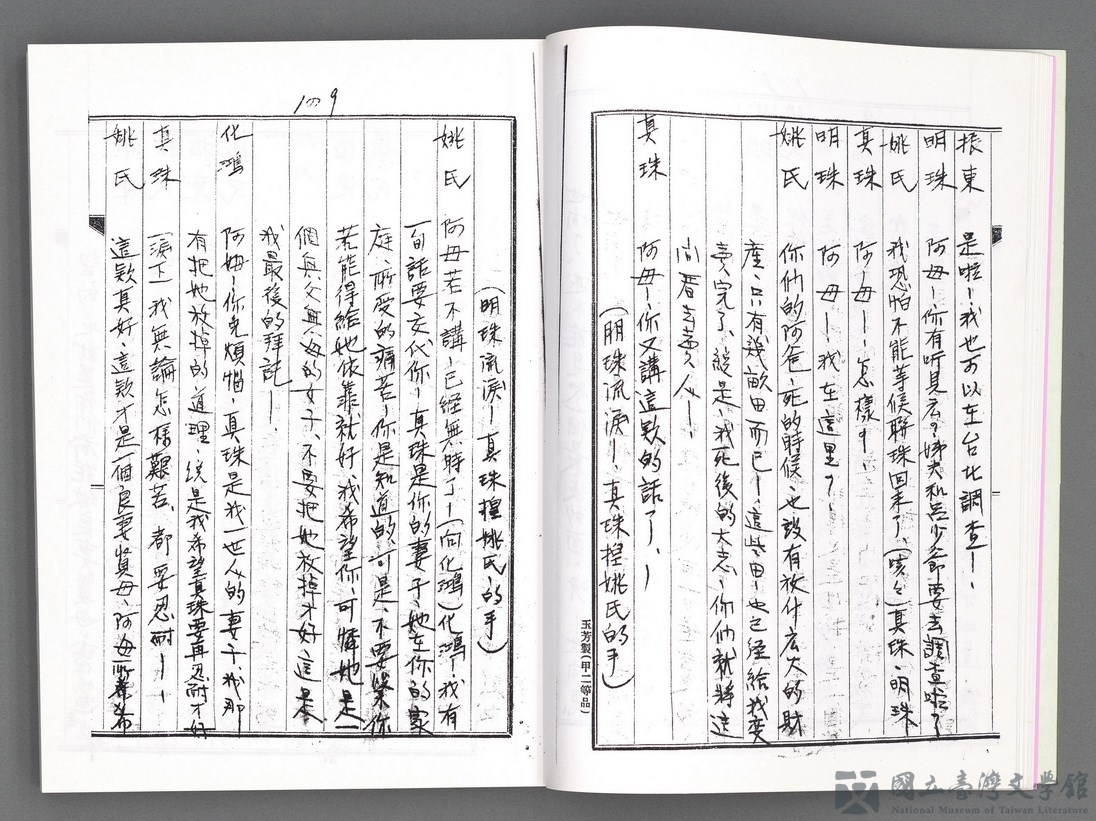 振東　是啦！我也可以在台北調查！、
明珠　阿母！你有听見広？姊夫和呂少爺要去調查啦？
姚氏　我恐怕不能等候聯珠回来了、（咳々）真珠、明珠！
真珠　阿母！！怎樣？
明珠　阿　母！我在這里？
姚氏　你们的阿爸、死的時候、也設有放什広大的財
產、只有幾畝田而已！這些田！也已经給我变
賣完了、総是、我死後的大志、你们就將這
向看去
真珠　阿母！、你又講這款的話了、！
（明珠流淚！、真珠捏姚氏的手）
玉芳製（甲二等品）
109
（明珠流淚！真珠捏姚氏的手）
姚氏　阿母若不講！已経無時了！（向化鴻）化鴻！我有
一句話要交代你！真珠是你的妻子、她在你的家
庭、所受的痛苦！你是知道的、可是、不要緊、你
若能得給她依靠就好、我希望你、可憐她是一
個無父無母的女子、不要把她放掉才好、這是
我最後的拜託！
化鴻　阿姆！你免煩惱、真珠是我一世人的妻子、我那
有把她放掉的道理、総是我希望真珠要再忍耐才好
真珠　（淚下）我無論怎様艱苦、都要忍耐！！
姚氏　這款真好、這款才是一個良妻賢母、阿母所希
國立臺灣文學館
National Museum of Taiwan Literature